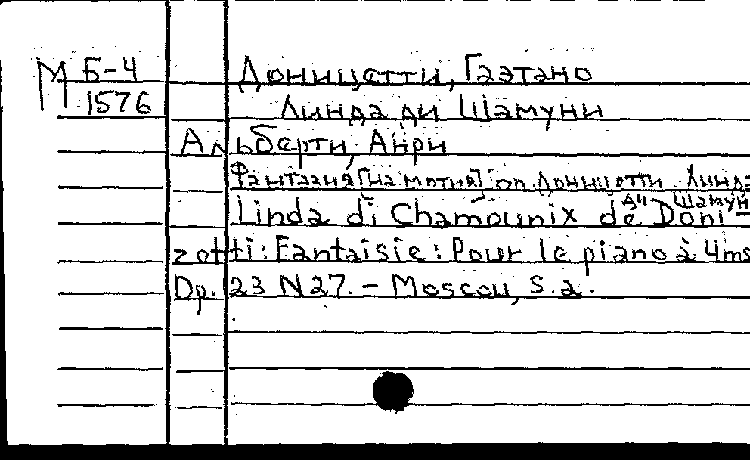 М Б-4
1576
Доницетти, Гаэтано
Линда ди Шамуни
Альберти, Анри
Фантазия [на мотив] оп. Доницетти Линда
ди Шамун
Linda di Chamounix de Doni-
zetti: Fantaisie: Pour le piano à 4ms
Op. 23 N27. - Moscou, s.a.